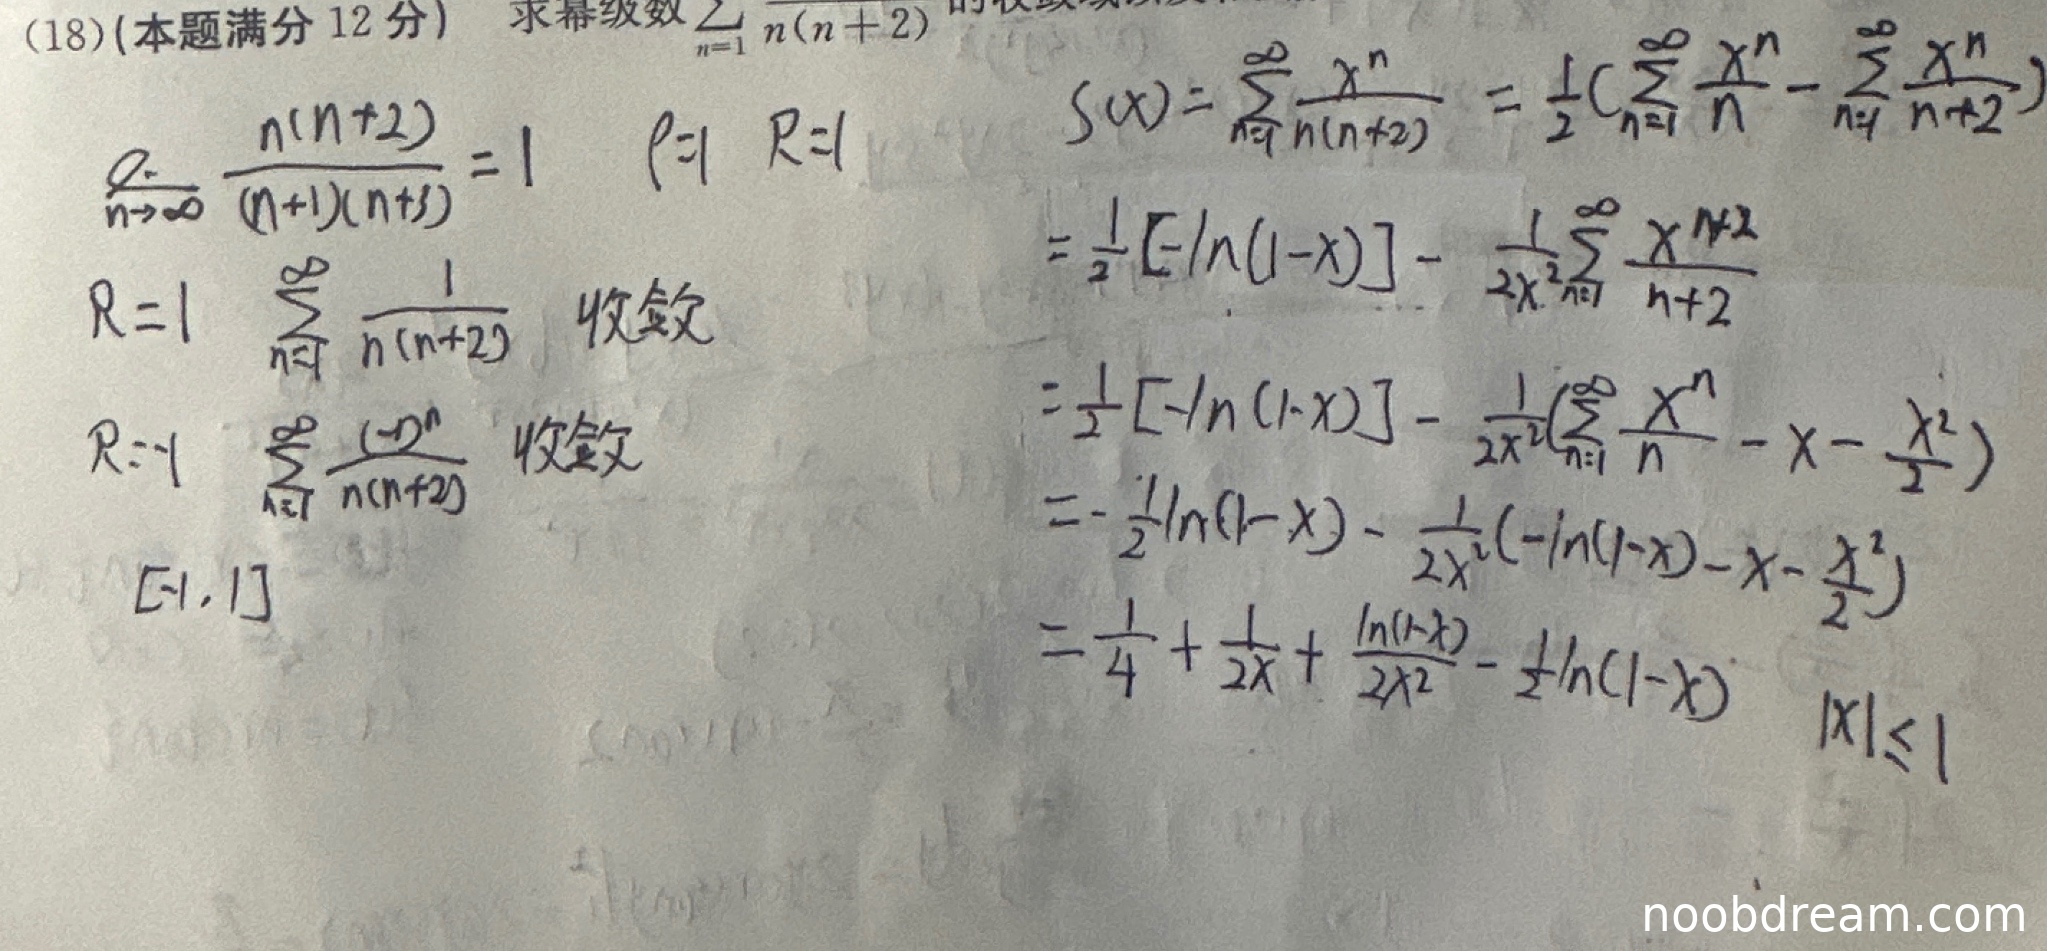 (18)(本题满分 12 分) 求幂级数 $\sum_{n=1} \frac{}{n(n+2)}$
$\lim_{n \to \infty} \frac{n(n+2)}{(n+1)(n+3)} = 1$ ρ=1 R=1
R=1 $\sum_{n=1}^{\infty} \frac{1}{n(n+2)}$ 收敛
R=-1 $\sum_{n=1}^{\infty} \frac{(-1)^n}{n(n+2)}$ 收敛
[-1,1]
$S(x) = \sum_{n=1}^{\infty} \frac{x^n}{n(n+2)} = \frac{1}{2}(\sum_{n=1}^{\infty} \frac{x^n}{n} - \sum_{n=1}^{\infty} \frac{x^n}{n+2})$
$= \frac{1}{2}[-\ln(1-x)] - \frac{1}{2x^2} \sum_{n=1}^{\infty} \frac{x^{n+2}}{n+2}$
$= \frac{1}{2}[-\ln(1-x)] - \frac{1}{2x^2}(\sum_{n=1}^{\infty} \frac{x^n}{n} - x - \frac{x^2}{2})$
$= -\frac{1}{2}\ln(1-x) - \frac{1}{2x^2}(-\ln(1-x) - x - \frac{x^2}{2})$
$= \frac{1}{4} + \frac{1}{2x} + \frac{\ln(1-x)}{2x^2} - \frac{1}{2}\ln(1-x)$ $|x| \le 1$
noobdream.com